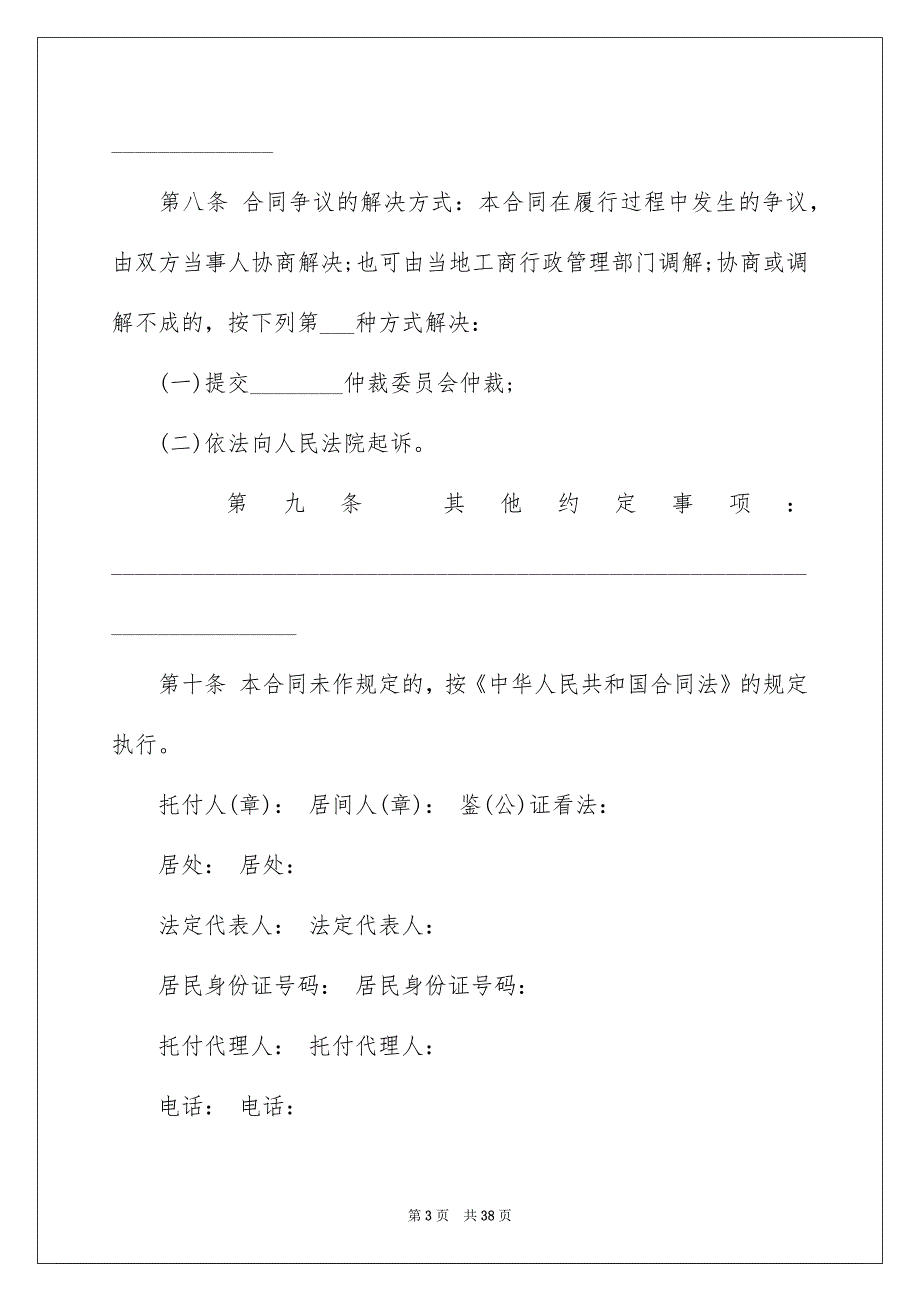 ______________
第八条 合同争议的解决方式：本合同在履行过程中发生的争议，
由双方当事人协商解决;也可由当地工商行政管理部门调解;协商或调
解不成的，按下列第___种方式解决：
(一)提交________仲裁委员会仲裁;
(二)依法向人民法院起诉。
第九条 其他约定事项：
____________________________________________________________
________________
第十条 本合同未作规定的，按《中华人民共和国合同法》的规定
执行。
托付人(章)： 居间人(章)： 鉴(公)证看法：
居处： 居处：
法定代表人： 法定代表人：
居民身份证号码： 居民身份证号码：
托付代理人： 托付代理人：
电话： 电话：
第 3 页 共 38 页